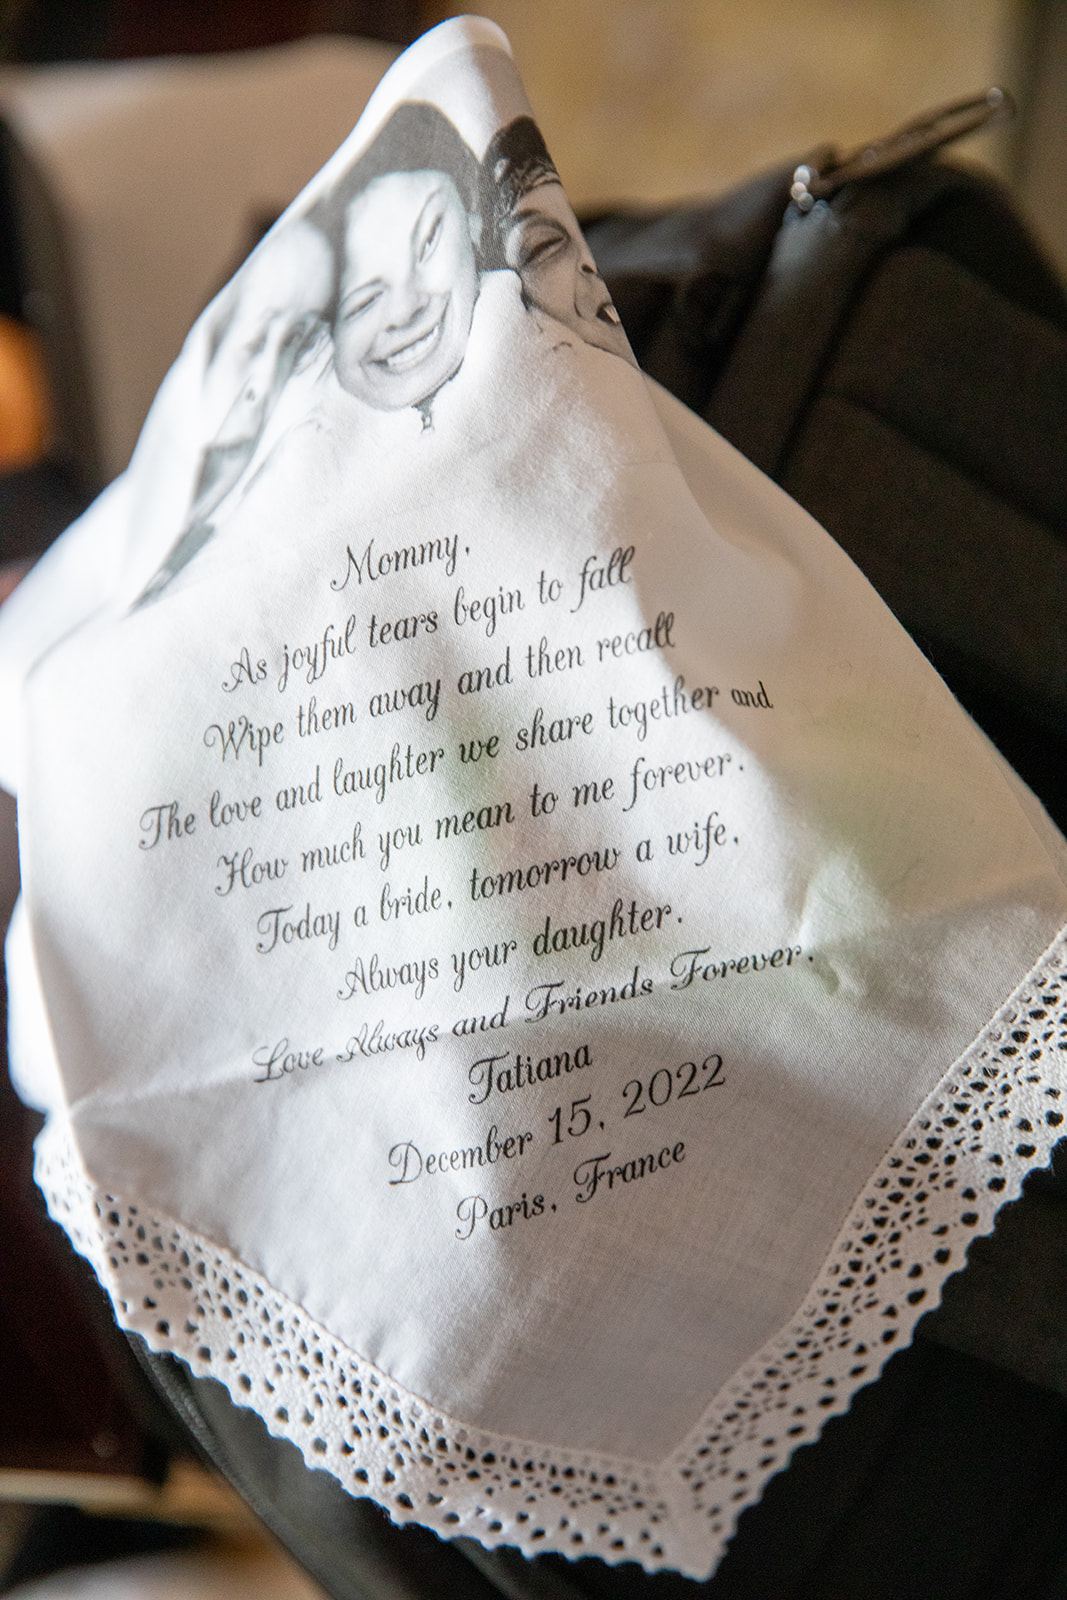 Mommy,
As joyful tears begin to fall
Wipe them away and then recall
The love and laughter we share together and
How much you mean to me forever.
Today a bride, tomorrow a wife,
Always your daughter.
Love Always and Friends Forever.
Tatiana
December 15, 2022
Paris, France